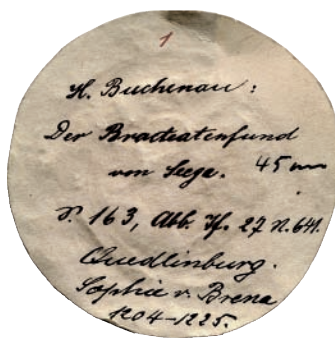 1
H. Buchenau:
Der Bracteatenfund
von Seega. 45 mm
S. 163, Abb. Tf. 27 N. 641.
Quedlinburg.
Sophie v. Brena
1204-1225.